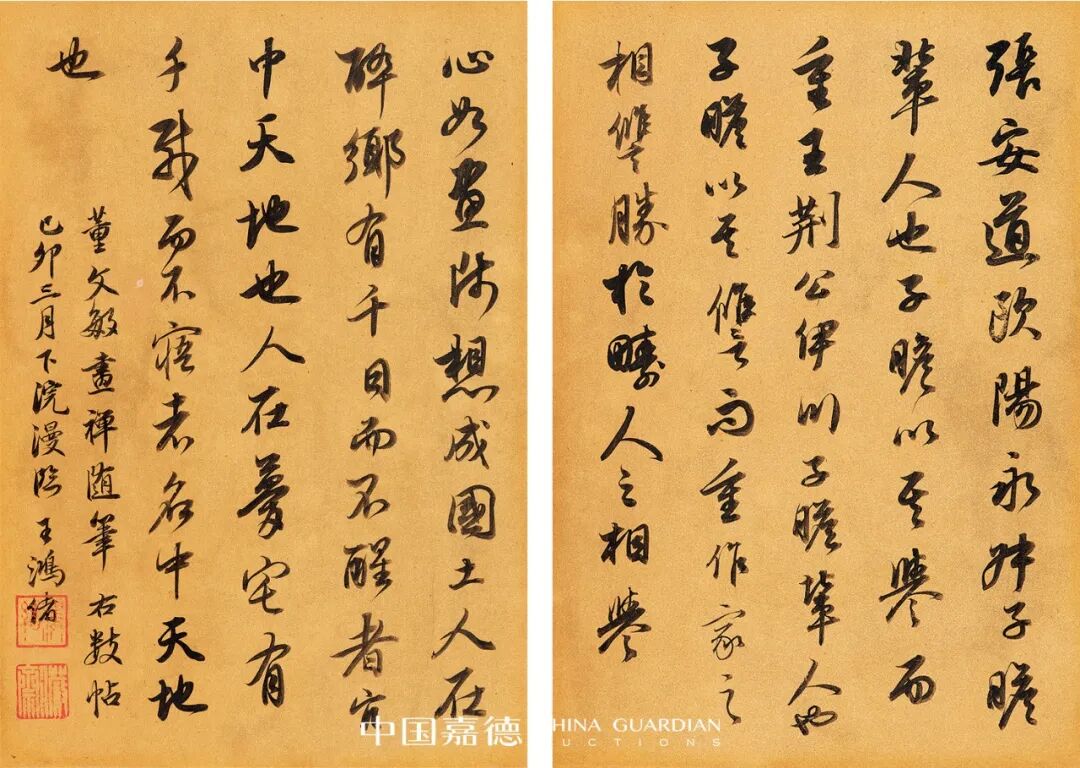 張安道歐陽永叔子瞻
輩人也子瞻以其譽而
重王荊公伊川子瞻輩人也
子瞻以其讐而重作家之
相讐勝於疇人之相譽
心如畫師想成國土人在
醉鄉有千日而不醒者官
中天地也人在夢宅有
千載而不寤者名中天地
也
董文敏畫禪隨筆 右數帖
己卯三月下浣漫臨 王鴻緒
中国嘉德 CHINA GUARDIAN
AUCTIONS